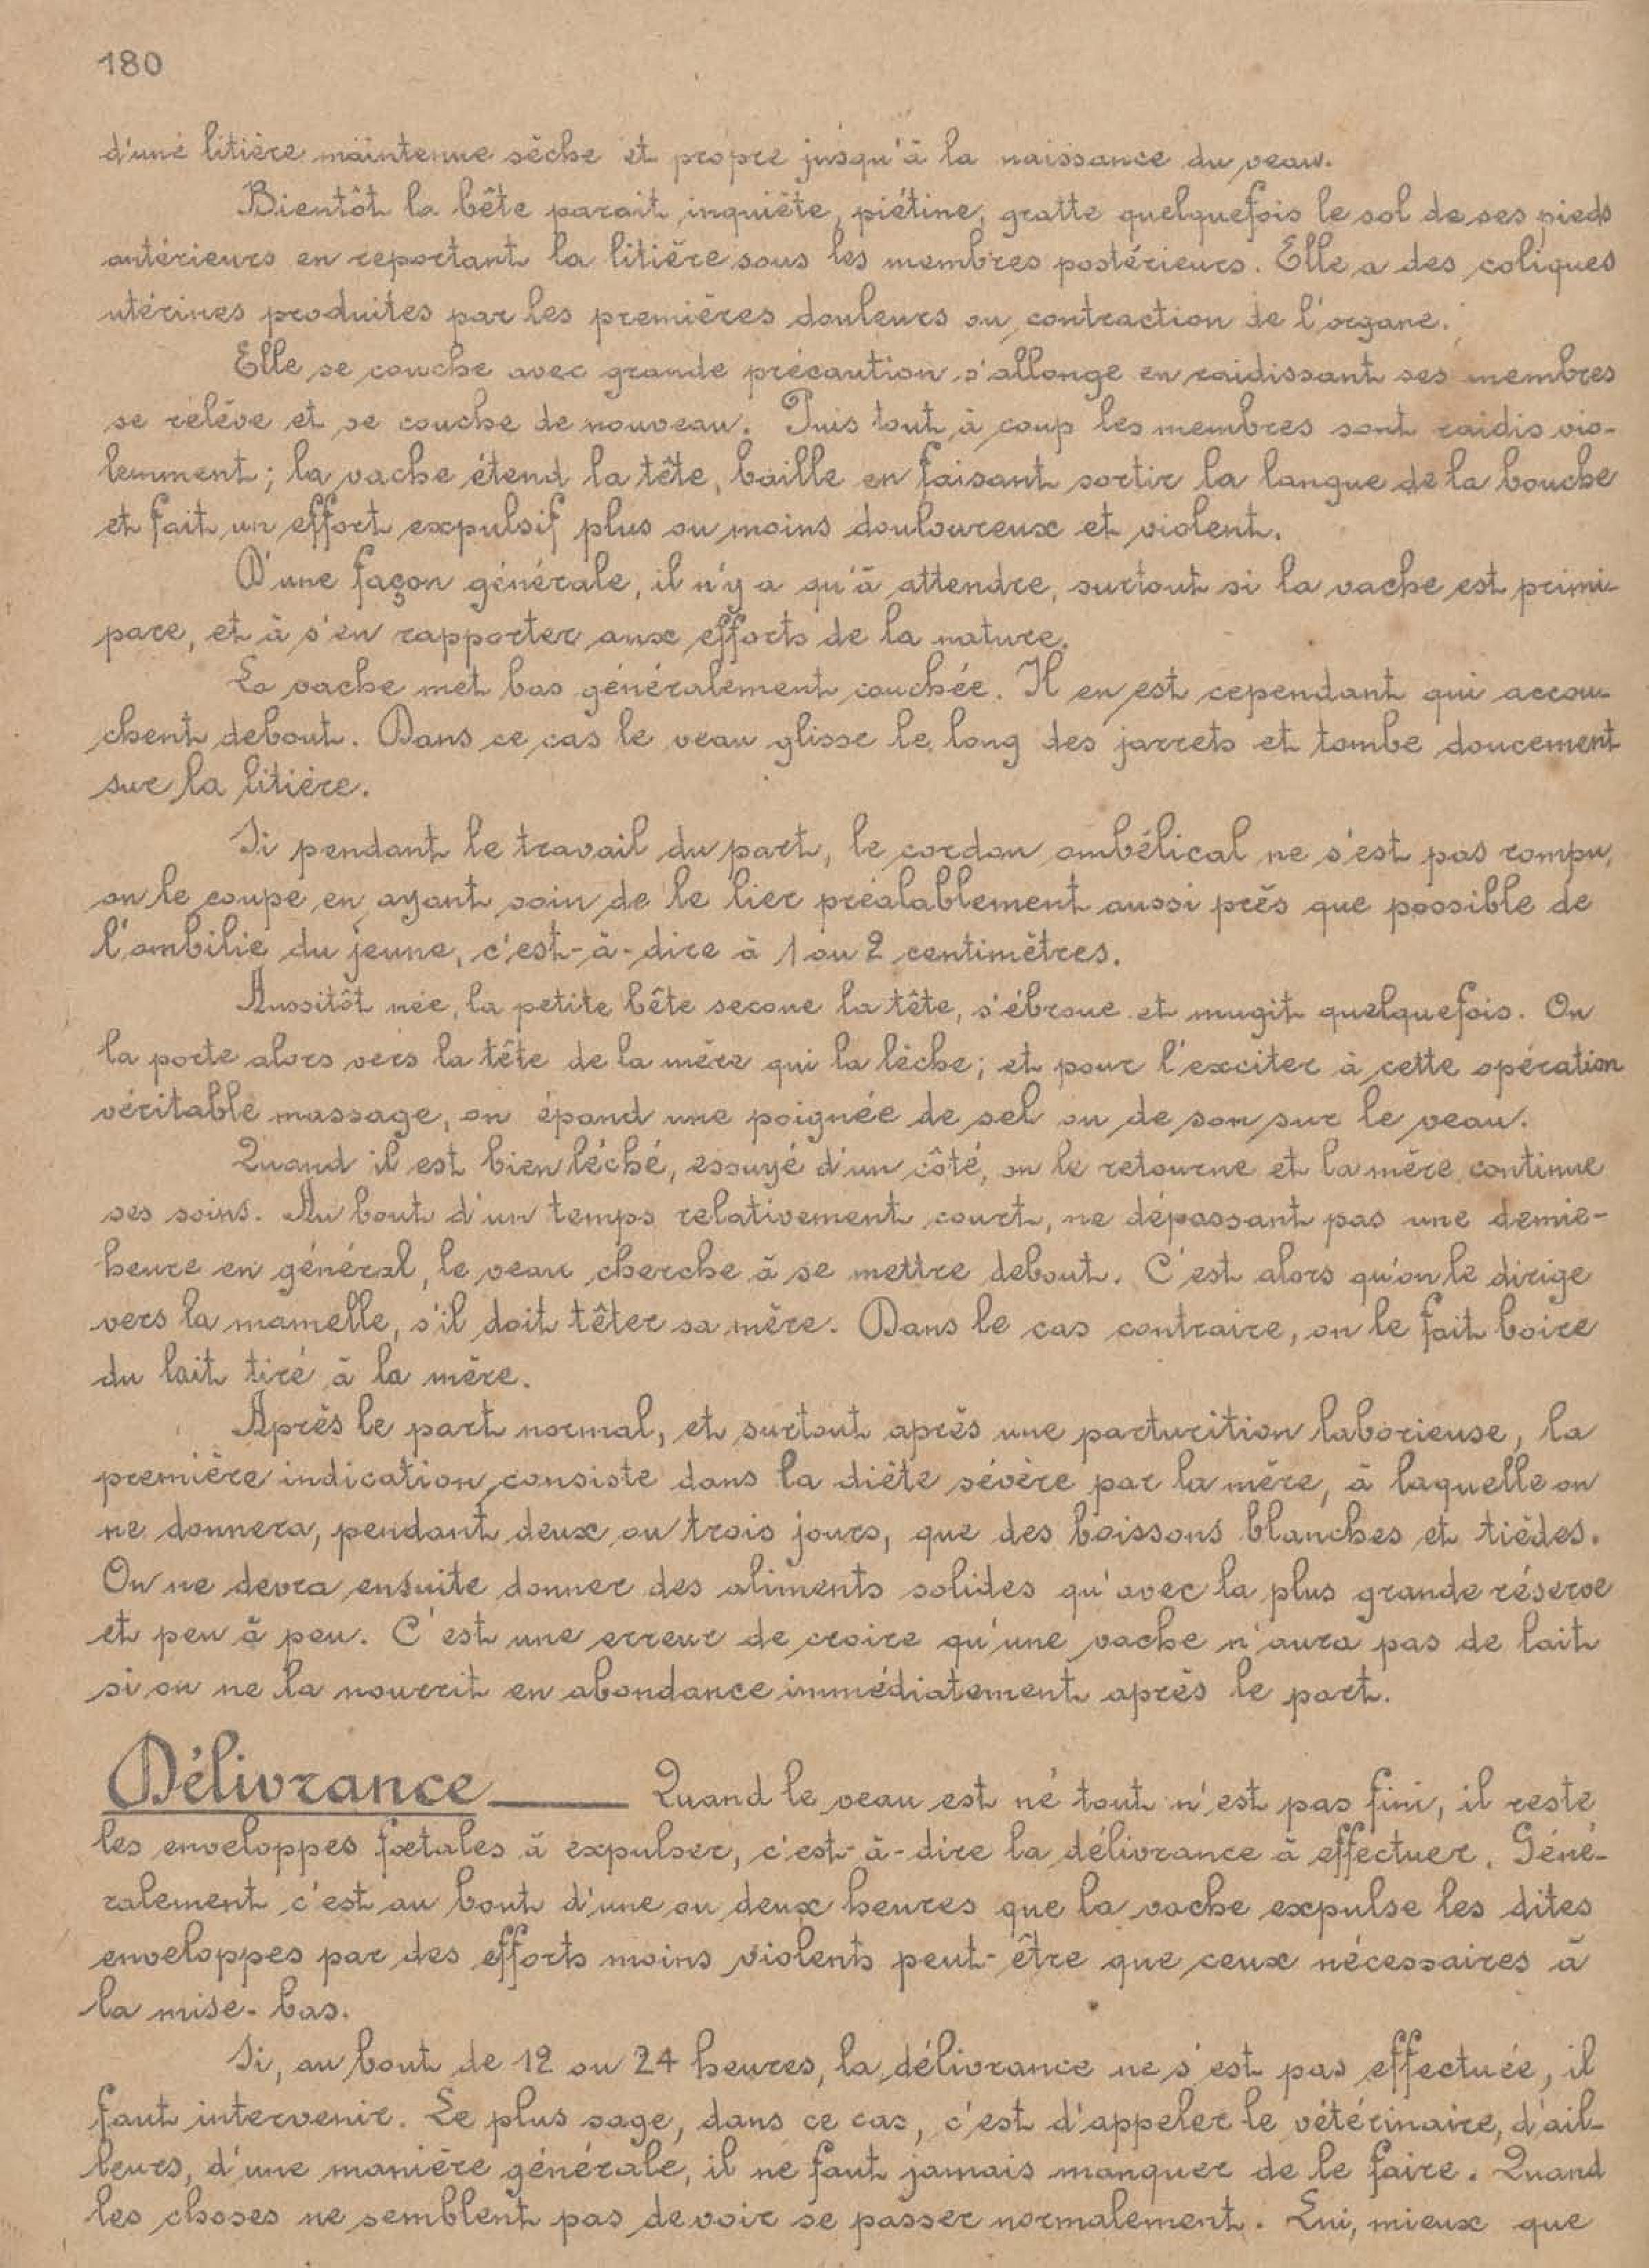 180
d'une litière maintenue sèche et propre jusqu'à la naissance du veau.
Bientôt la bête parait inquiète, piétine, gratte quelquefois le sol de ses pieds
antérieurs en reportant la litière sous les membres postérieurs. Elle a des coliques
utérines produites par les premières douleurs ou contraction de l'organe.
Elle se couche avec grande précaution s'allonge en raidissant ses membres
se relève et se couche de nouveau. Puis tout à coup les membres sont raidis vio-
lemment; la vache étend la tête, baille en faisant sortir la langue de la bouche
et fait un effort expulsif plus ou moins douloureux et violent.
D'une façon générale, il n'y a qu'à attendre, surtout si la vache est primi-
pare, et à s'en rapporter aux efforts de la nature.
La vache met bas généralement couchée. Il en est cependant qui accou-
chent debout. Dans ce cas le veau glisse le long des jarrets et tombe doucement
sur la litière.
Si pendant le travail du part, le cordon ombélical ne s'est pas rompu,
on le coupe en ayant soin de le lier préalablement aussi près que possible de
l'ombilie du jeune, c'est-à-dire à 1 ou 2 centimètres.
Aussitôt née, la petite bête secoue la tête, s'ébroue et mugit quelquefois. On
la porte alors vers la tête de la mère qui la lèche; et pour l'exciter à cette opération
véritable massage, on épand une poignée de sel ou de son sur le veau.
Quand il est bien léché, essuyé d'un côté, on le retourne et la mère continue
ses soins. Au bout d'un temps relativement court, ne dépassant pas une demie-
heure en général, le veau cherche à se mettre debout. C'est alors qu'on le dirige
vers la mamelle, s'il doit têter sa mère. Dans le cas contraire, on le fait boire
du lait tiré à la mère.
Après le part normal, et surtout après une parturition laborieuse, la
première indication consiste dans la diète sévère par la mère, à laquelle on
ne donnera, pendant deux ou trois jours, que des boissons blanches et tièdes.
On ne devra ensuite donner des aliments solides qu'avec la plus grande réserve
et peu à peu. C'est une erreur de croire qu'une vache n'aura pas de lait
si on ne la nourrit en abondance immédiatement après le part.
Délivrance Quand le veau est né tout n'est pas fini, il reste
les enveloppes fœtales à expulser, c'est-à-dire la délivrance à effectuer. Géné-
ralement c'est au bout d'une ou deux heures que la vache expulse les dites
enveloppes par des efforts moins violents peut-être que ceux nécessaires à
la mise-bas.
Si, au bout de 12 ou 24 heures, la délivrance ne s'est pas effectuée, il
faut intervenir. Le plus sage, dans ce cas, c'est d'appeler le vétérinaire, d'ail-
leurs, d'une manière générale, il ne faut jamais manquer de le faire. Quand
les choses ne semblent pas devoir se passer normalement. Lui, mieux que